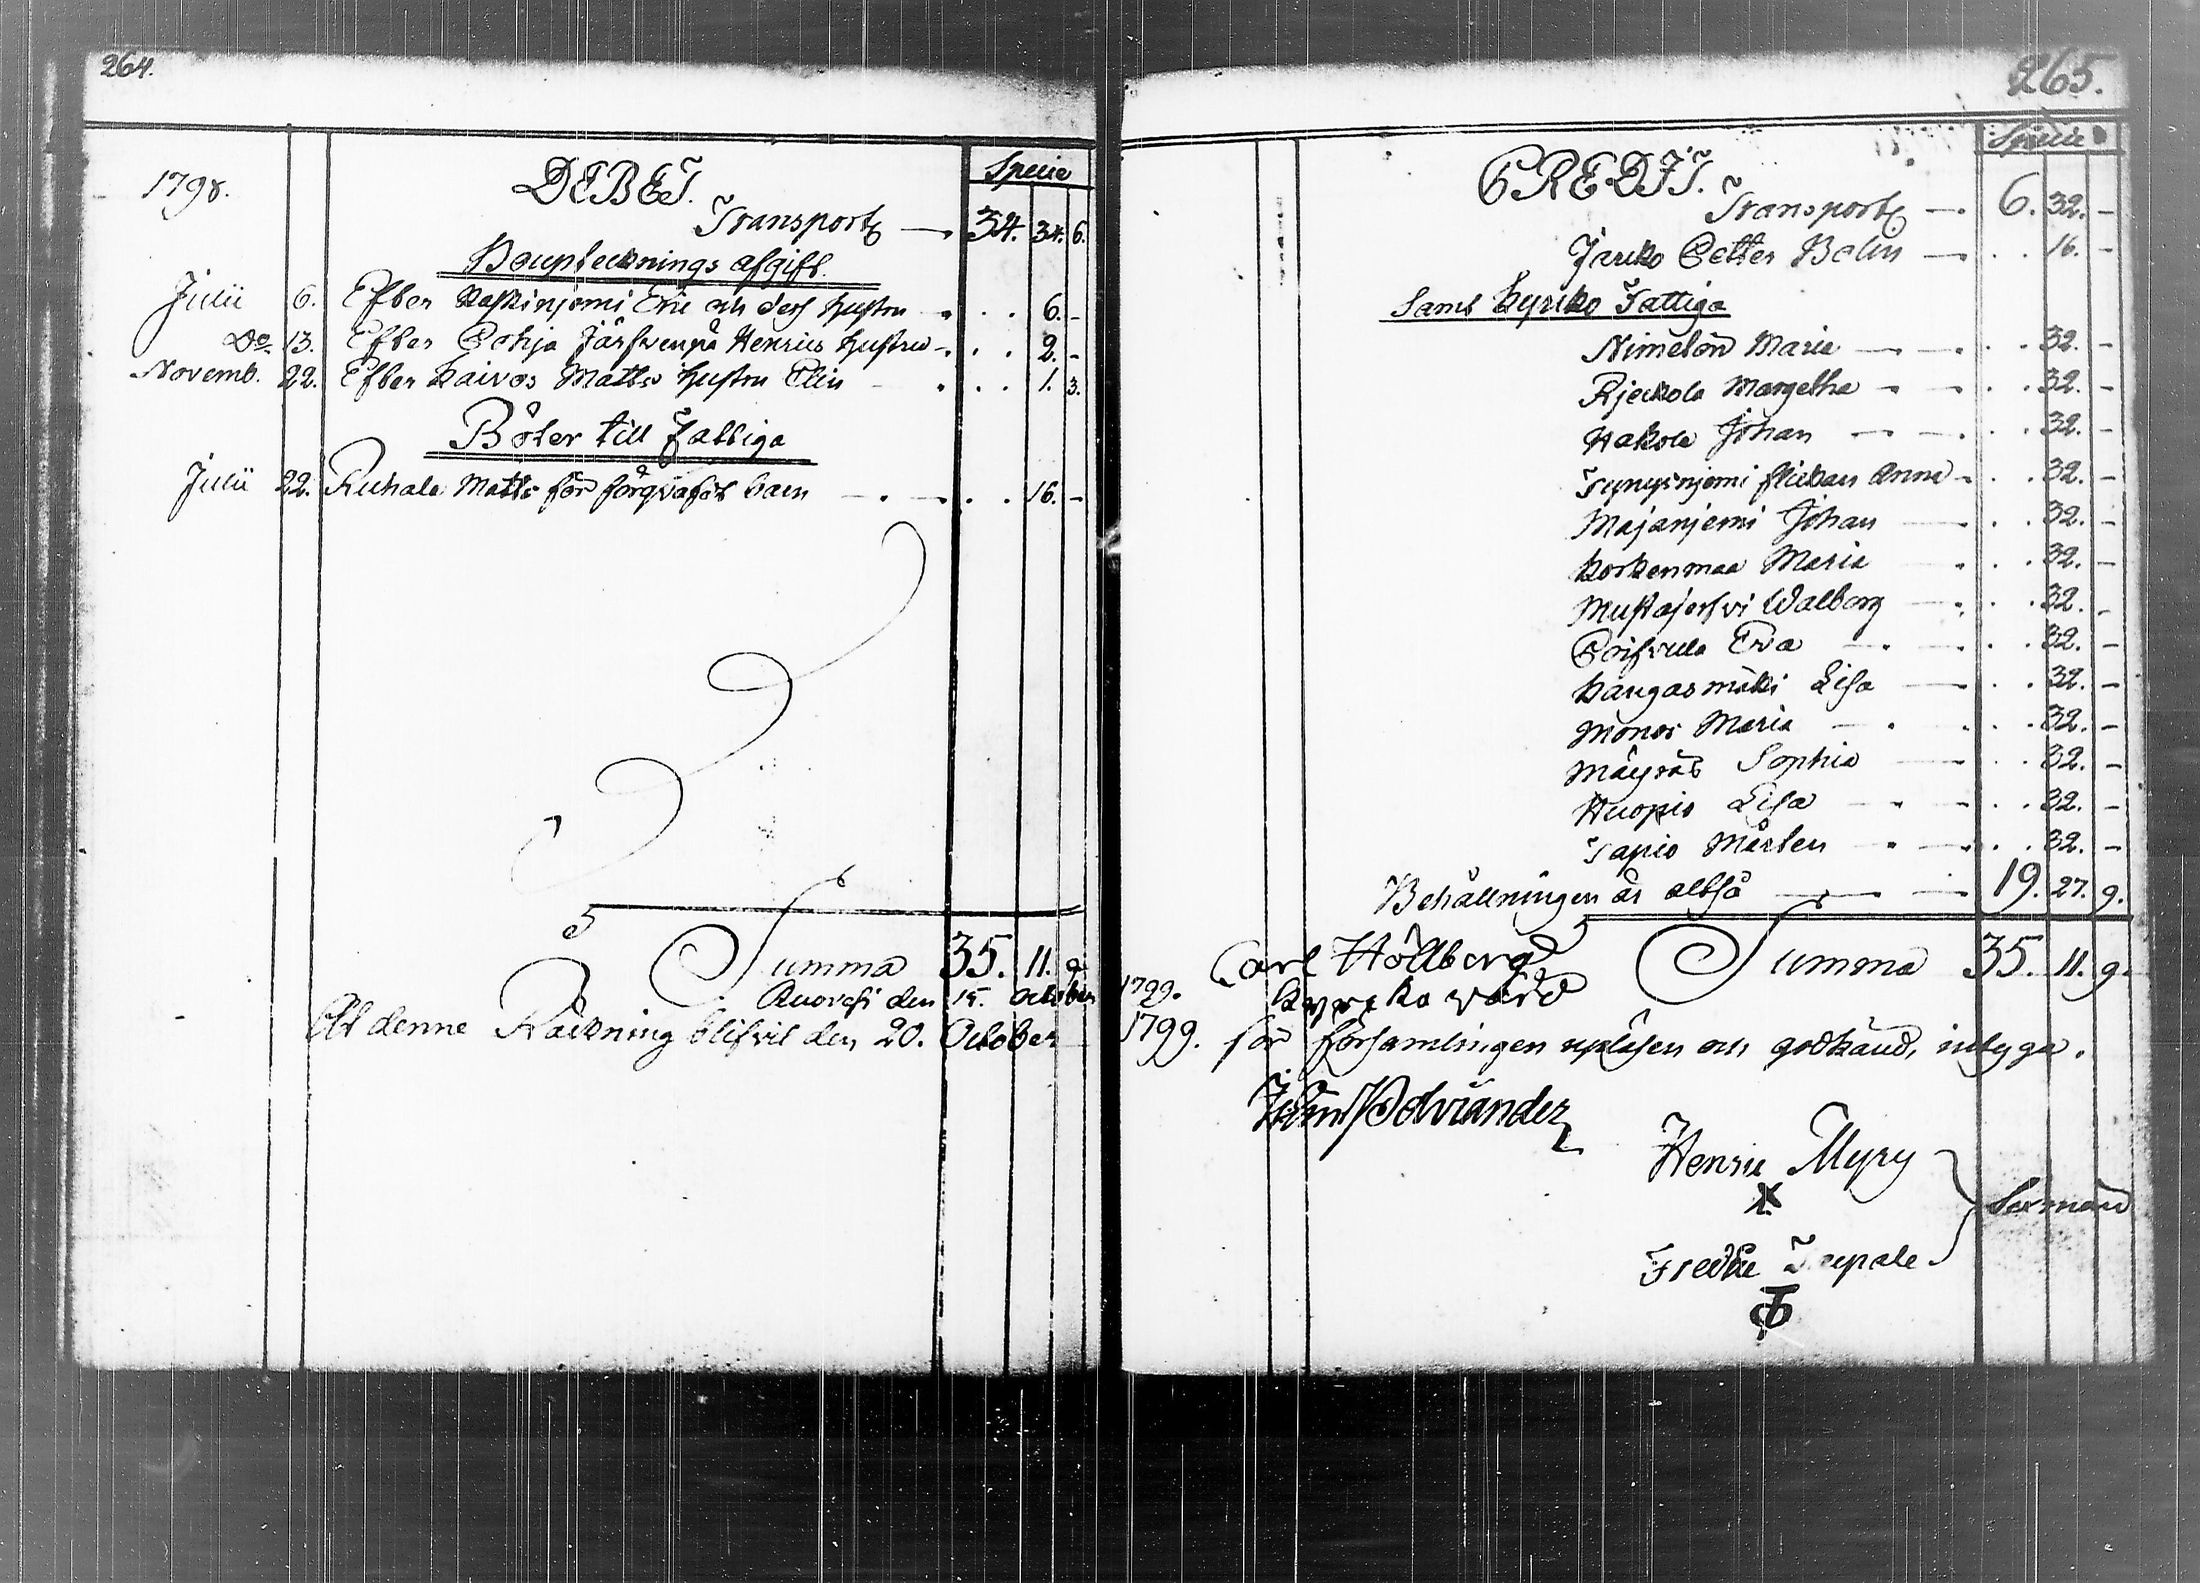 264.
Specie
1798. DEBET.
Transport — 34. 34. 6.
Boupteknings afgift.
Julii 6. Efter Kaskinjemi Eric och dess hustru . . 6. -
Do 13. Efter Pohja Järfwenpä Henrics hustru . . 2. -
Novemb. 22. Efter Kaivos Matts hustru Elin . . 1. 3.
Böter till Fattiga
Julii 22. Ruhala Matts för barn . . 16. -
Summa 35. 11. 9.
Ruovesi den 15. October
At denne Räckning blifvit den 20. October
265.
Specie
CREDIT.
Transport — 6. 32. -
Petter Bolin — . . 16. -
Samt Kyrcko Fattiga
Maria — . . 32. -
Margetha - . . 32. -
Hakola Johan — . . 32. -
flickan Anna - . . 32. -
Majanjemi Johan — . . 32. -
Korkenmaa Maria . . 32. -
Mustajerfvi Walborg — . . 32. -
Eva — . . 32. -
Kangasmäki Lisa — . . 32. -
Monos Maria — . . 32. -
Mäyräs Sophia — . . 32. -
Huopio Lisa — . . 32. -
Tapio Mårten . . 32. -
Behållningen är altså — 19. 27. 9.
Summa 35. 11. 9.
1799. Carl Hollberg
Kyrcko värd
1799. för församlingen upläsen och godkänd, intyga.
Henric Myry
Sexmän